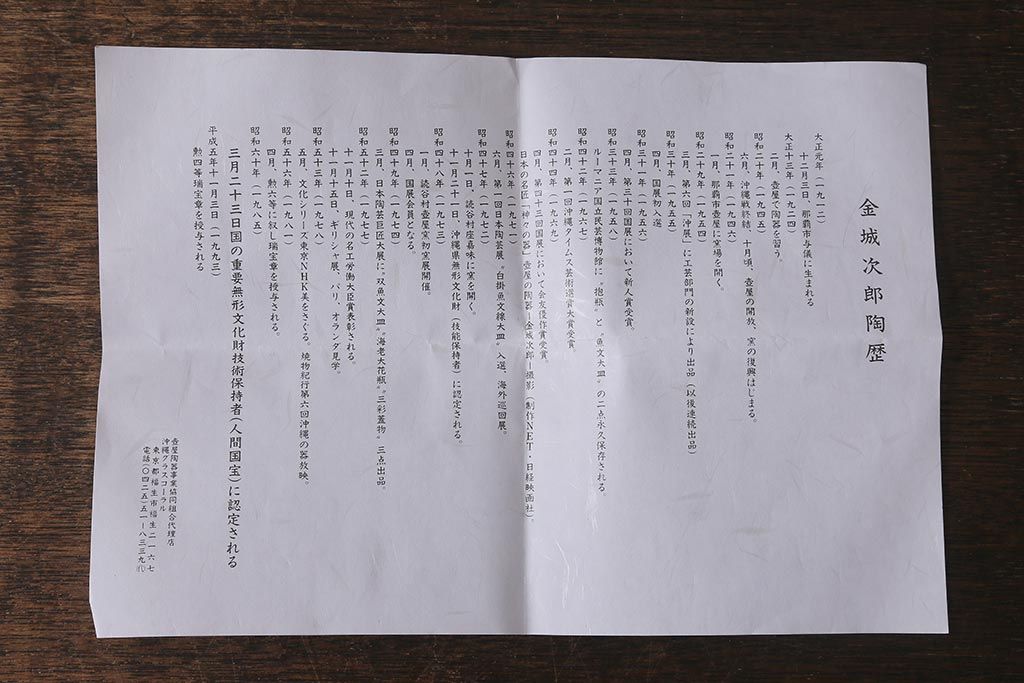 金城次郎陶歴
大正元年(一九一二)
十二月三日、那覇市与儀に生まれる
大正十三年(一九二四)
二月、壺屋で陶器を習う。
昭和二十年(一九四五)
六月、沖縄戦終結、十月頃、壺屋の開放、窯の復興はじまる。
昭和二十一年(一九四六)
一月、那覇市壺屋に窯場を開く。
昭和二十九年(一九五四)
三月、第六回「沖展」に工芸部門の新設により出品(以後連続出品)
昭和三十一年(一九五六)
四月、国展初入選
昭和三十三年(一九五八)
四月、第三十回国展において新人賞受賞。
ルーマニア国立民芸博物館に〝抱瓶〟と〝魚文大皿〟の二点永久保存される。
昭和四十二年(一九六七)
二月、第一回沖縄タイムス芸術選賞大賞受賞。
昭和四十四年(一九六九)
四月、第四十三回国展において会友優作賞受賞。
日本の名匠「神々の器」壺屋の陶器―金城次郎―撮影(制作NET・日経映画社)。
昭和四十六年(一九七一)
六月、第一回日本陶芸展〝白掛魚文線大皿〟入選、海外巡回展。
昭和四十七年(一九七二)
十月一日、読谷村座喜味に窯を開く。
十一月二十一日、沖縄県無形文化財(技能保持者)に認定される。
昭和四十八年(一九七三)
一月、読谷村壺屋窯初窯展開催。
四月、国展会員となる。
昭和四十九年(一九七四)
三月、日本陶芸巨匠大展に〝双魚文大皿〟〝海老大花瓶〟〝三彩蓋物〟三点出品。
昭和五十二年(一九七七)
十一月十日、現代の名工労働大臣賞表彰される。
十一月十五日、ギリシャ展、パリ、オランダ見学。
昭和五十三年(一九七八)
五月、文化シリーズ東京NHK美をさぐる。焼物紀行第六回沖縄の器放映。
昭和五十六年(一九八一)
四月、勲六等に叙し瑞宝章を授与される。
昭和六十年(一九八五)
三月二十三日国の重要無形文化財技術保持者(人間国宝)に認定される
平成五年十一月三日(一九九三)
勲四等瑞宝章を授与される
壺屋陶器事業協同組合代理店
沖縄グラスコーラル
東京都福生市福生二一六七
電話(〇四二五)五一―八三三九(代)